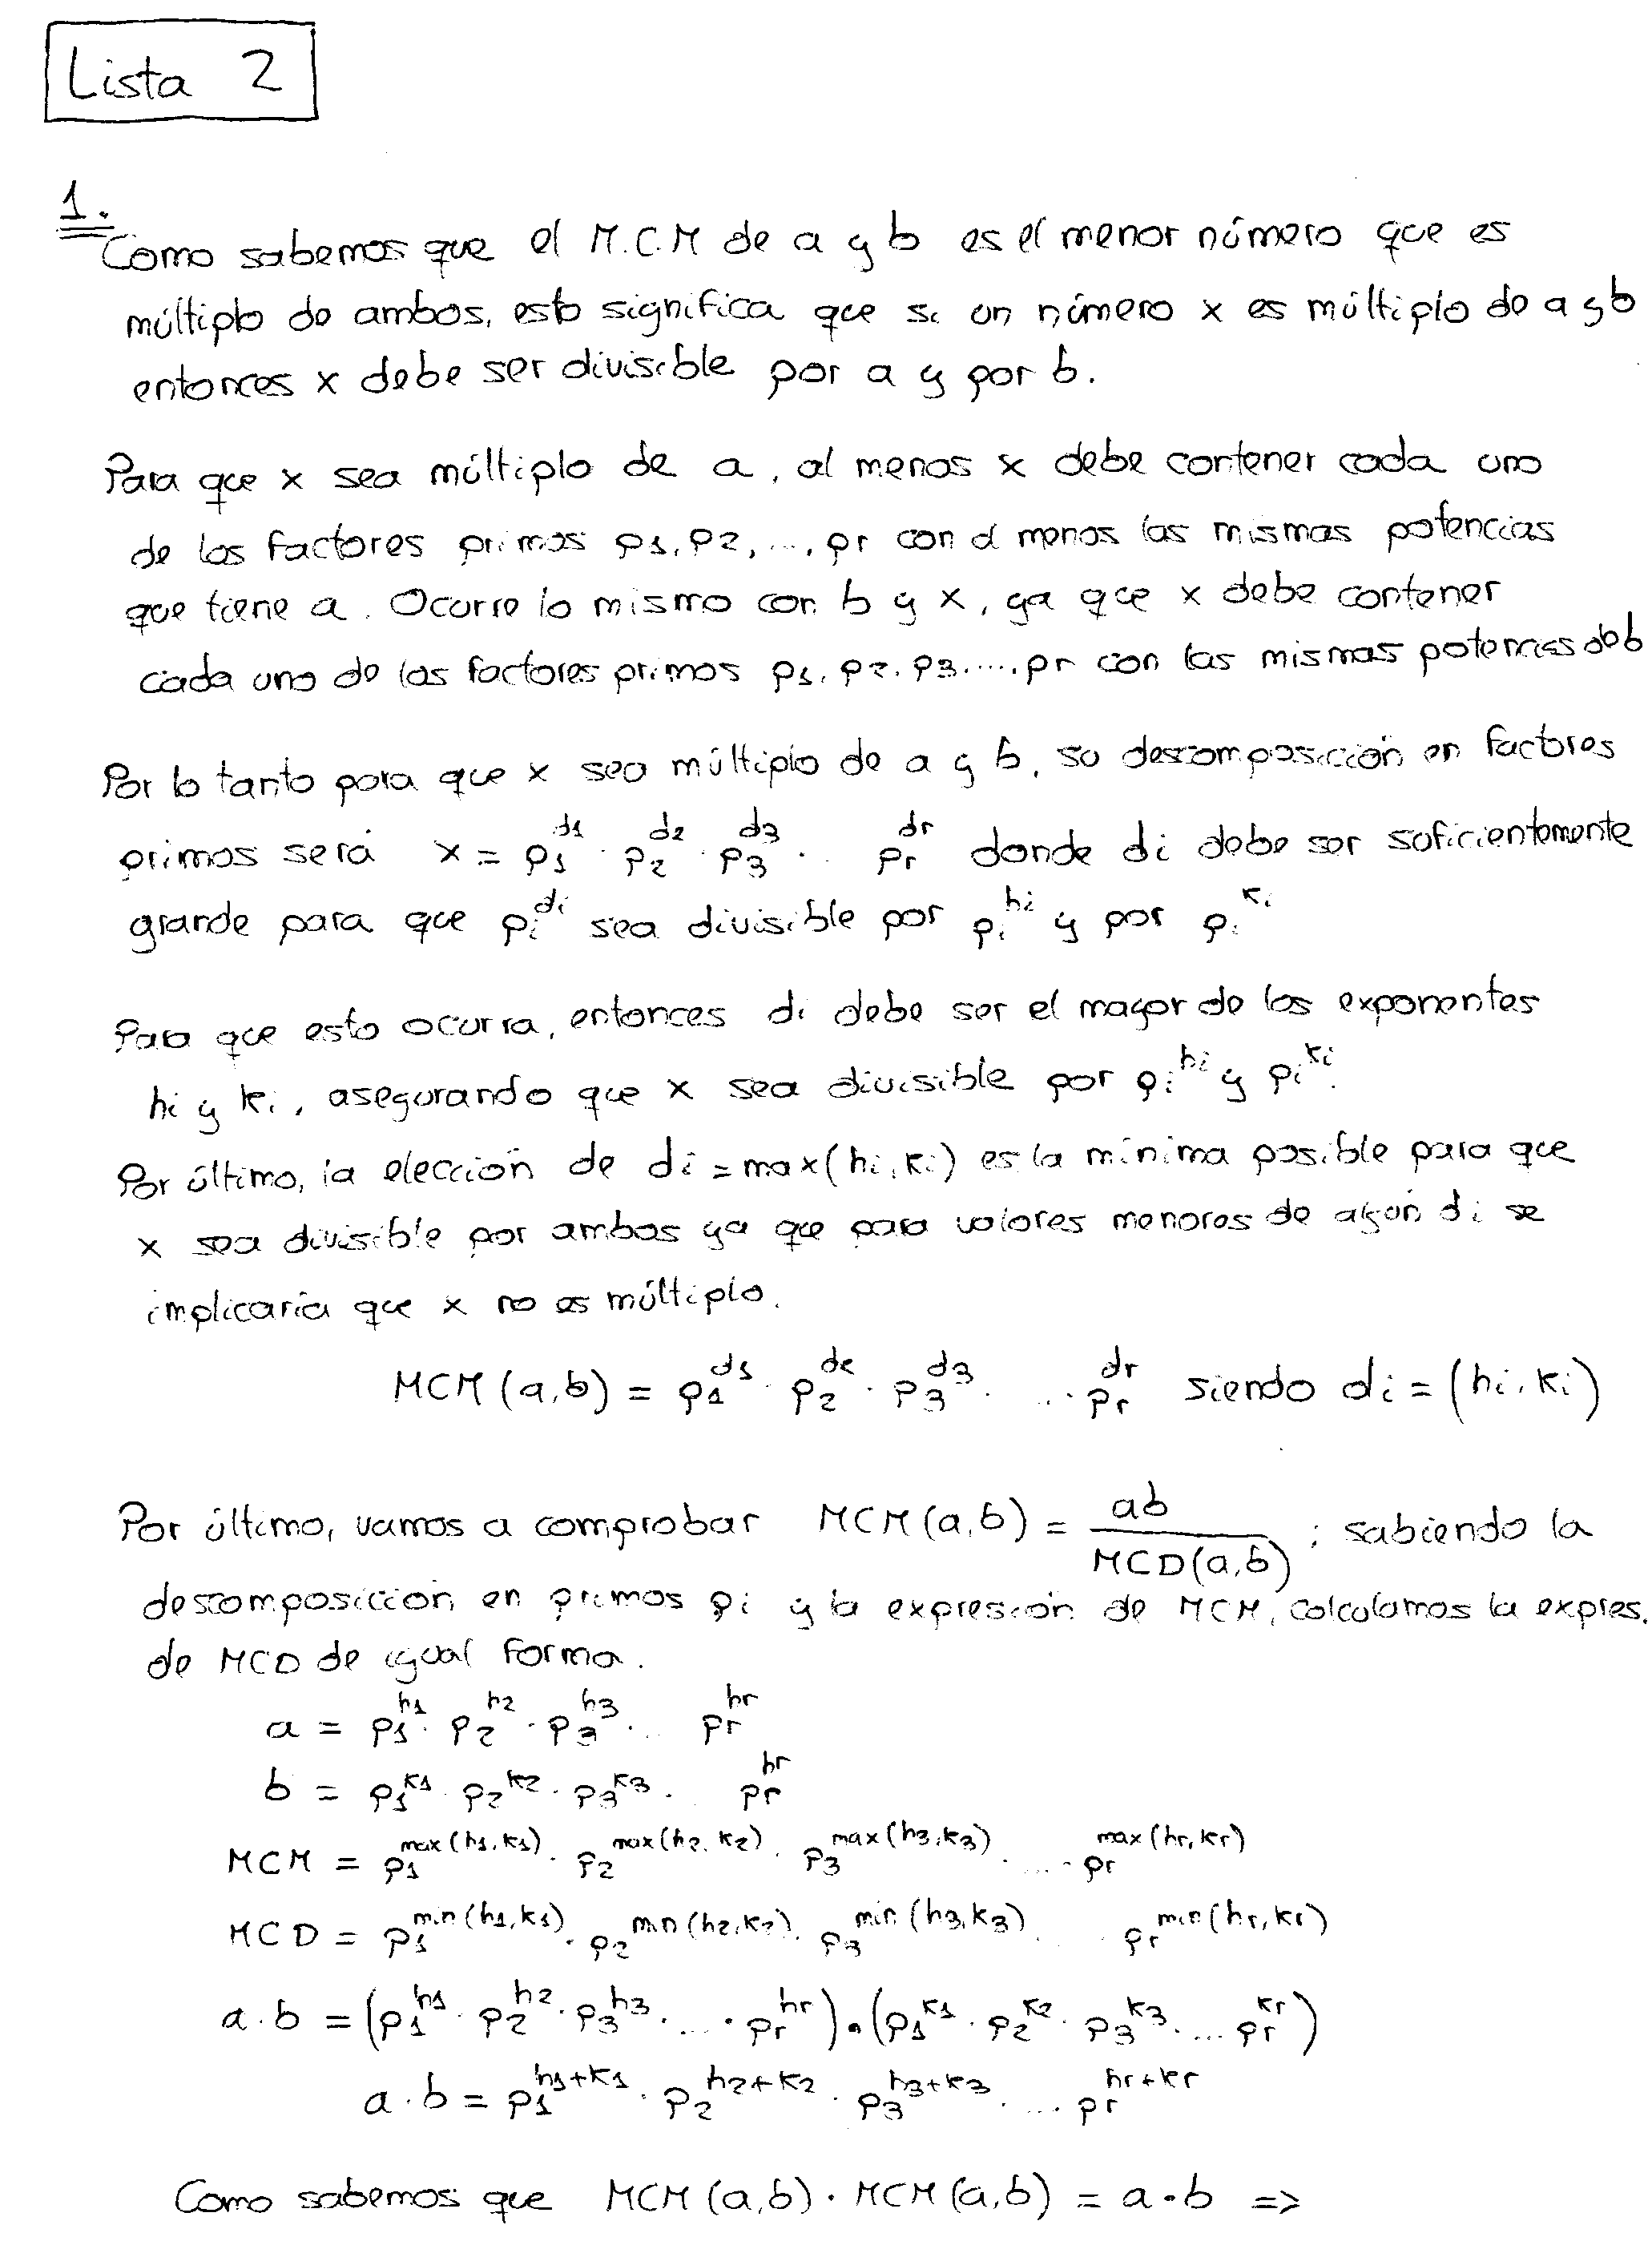 Lista 2
1.
Como sabemos que el M.C.M de a y b es el menor número que es
múltiplo de ambos, esto significa que si un número x es múltiplo de a y b
entonces x debe ser divisible por a y por b.
Para que x sea múltiplo de a, al menos x debe contener cada uno
de los factores primos p1, p2, ..., pr con al menos las mismas potencias
que tiene a. Ocurre lo mismo con b y x, ya que x debe contener
cada uno de los factores primos p1, p2, p3, ..., pr con las mismas potencias de b
Por lo tanto para que x sea múltiplo de a y b, su descomposición en factores
primos será x = p1^d1 · p2^d2 · p3^d3 · .. pr^dr donde di debe ser suficientemente
grande para que pi^di sea divisible por pi^hi y por pi^ki
Para que esto ocurra, entonces di debe ser el mayor de los exponentes
hi y ki, asegurando que x sea divisible por pi^hi y pi^ki.
Por último, la elección de di = max(hi, ki) es la mínima posible para que
x sea divisible por ambos ya que para valores menores de algún di se
implicaría que x no es múltiplo.
MCM (a,b) = p1^d1 · p2^d2 · p3^d3 · ... · pr^dr siendo di = (hi, ki)
Por último, vamos a comprobar MCM (a,b) = ab / MCD(a,b) ; sabiendo la
descomposición en primos pi y la expresión de MCM, calculamos la expres.
de MCD de igual forma.
a = p1^h1 · p2^h2 · p3^h3 · ... pr^hr
b = p1^k1 · p2^k2 · p3^k3 · .. pr^hr
MCM = p1^max(h1,k1) · p2^max(h2,k2) · p3^max(h3,k3) · ... · pr^max(hr,kr)
MCD = p1^min(h1,k1) · p2^min(h2,k2) · p3^min(h3,k3) · ... · pr^min(hr,kr)
a · b = (p1^h1 · p2^h2 · p3^h3 · ... · pr^hr) · (p1^k1 · p2^k2 · p3^k3 · ... pr^kr)
a · b = p1^h1+k1 · p2^h2+k2 · p3^h3+k3 · ... pr^hr+kr
Como sabemos que MCM (a,b) · MCM (a,b) = a · b =>